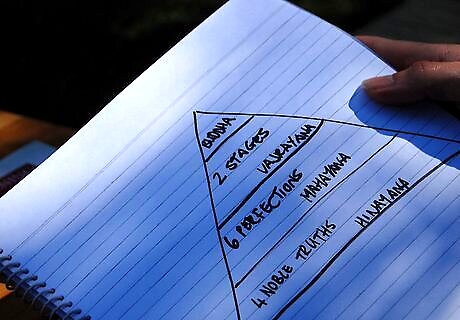 2. STAGES
VAJRAYANA
6 PERFECTIONS
MAHAYANA
4 NOBLE TRUTHS
HINAYANA